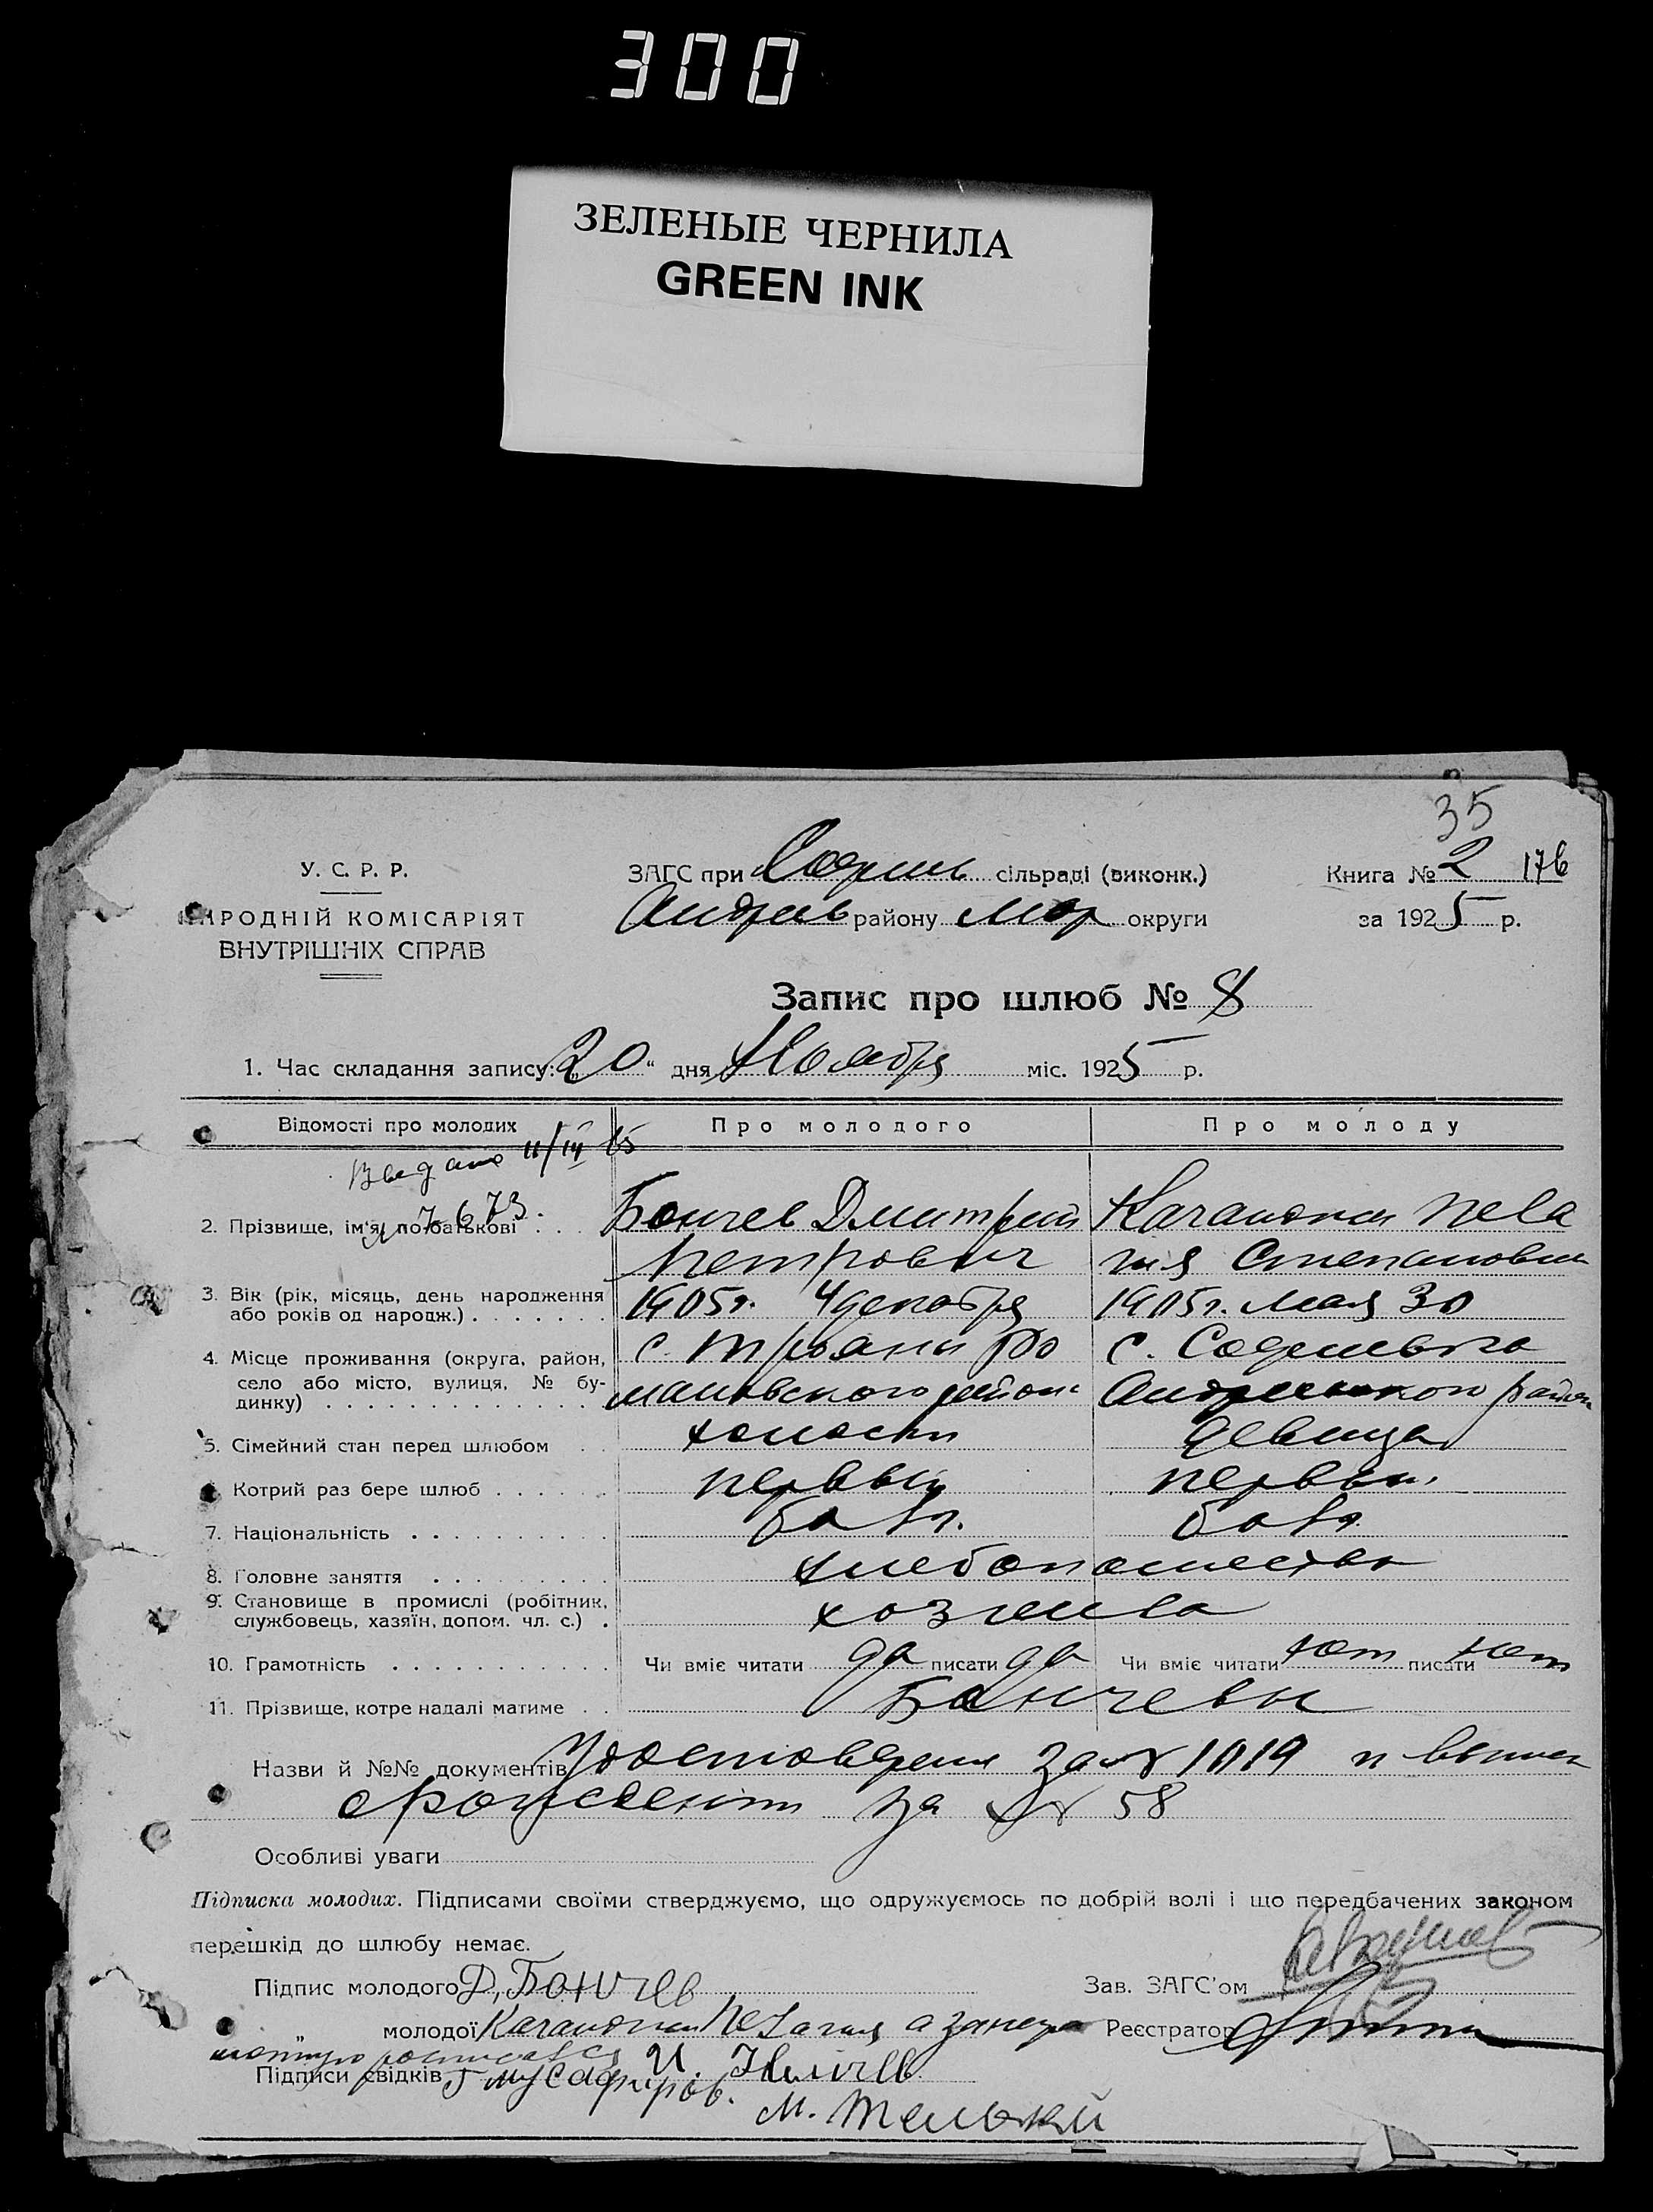 300
ЗЕЛЕНЫЕ ЧЕРНИЛА
GREEN INK
35
У. С. Р. Р.
ЗАГС при сільраді (виконк.)
Книга № 2 176
НАРОДНІЙ КОМІСАРІЯТ
Андреев району Мар округи
за 1925 р.
ВНУТРІШНІХ СПРАВ
Запис про шлюб № 8
1. Час складання запису: „20“ дня Ноября міс. 1925 р.
Відомості про молодих
Про молодого
Про молоду
11/III
7673.
2. Прізвище, ім'я, по батькові . . . Бончев Дмитрий Пела
Петрович гия Степановна
3. Вік (рік, місяць, день народження або років од народж.) . . . . . . . 1905г. 4 декабря 1905г. Мая 30
4. Місце проживання (округа, район, с. Трояны Ро с.
село або місто, вулиця, № бу- мановского района района
динку) . . . . . . . . . . . . .
5. Сімейний стан перед шлюбом . . холост девица
Котрий раз бере шлюб . . . . . . первый первый
7. Національність . . . . . . . . . болг. болг.
8. Головне заняття . . . . . . . . хлебопашество
9. Становище в промислі (робітник,
службовець, хазяїн, допом. чл. с.) . хозяева
10. Грамотність . . . . . . . . . . . Чи вміє читати да писати да Чи вміє читати нет писати нет
11. Прізвище, котре надалі матиме . . Бончевы
Назви й №№ документів за № 1019 и
о рождении за № 58
Особливі уваги
Підписка молодих. Підписами своїми стверджуємо, що одружуємось по добрій волі і що передбачених законом
перешкід до шлюбу немає.
Підпис молодого Д. Бончев
Зав. ЗАГС'ом
„ молодої Пелагия а за нее
Реєстратор
неграмотную
Підписи свідків Г Мусафиров.
М.